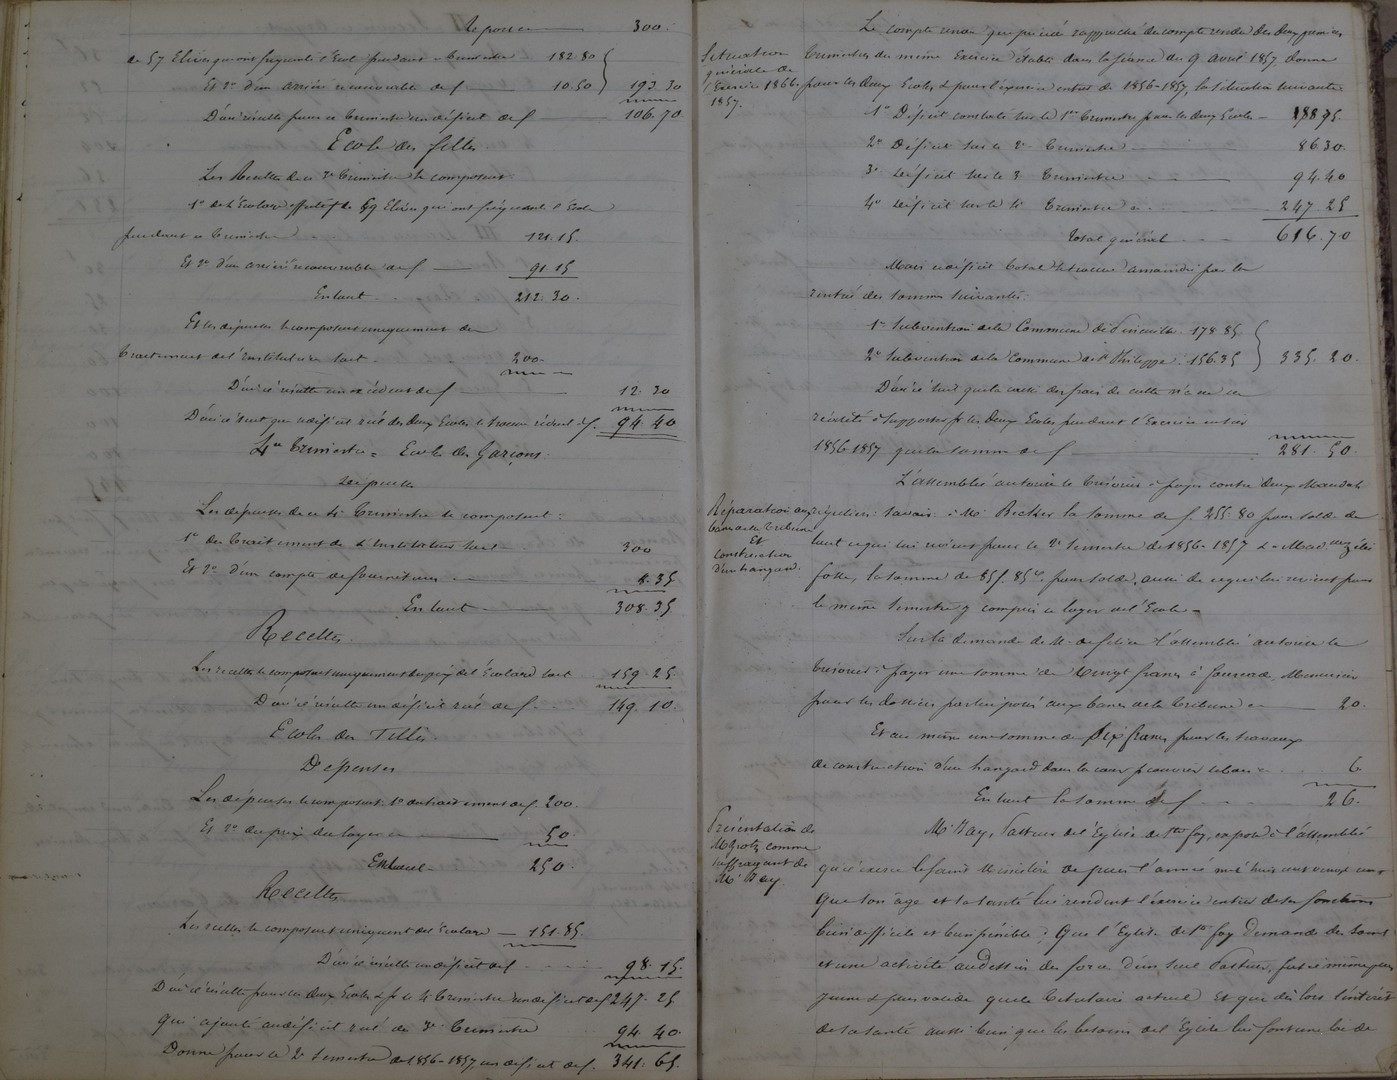 Report 300.
de 57 Elèves qui ont fréquenté l'Ecole pendant ce Trimestre 182.80
Et 2° d'un arriéré recouvrable de f 10.50 193.30
D'où résulte pour ce Trimestre un déficit de f 106.70
Ecole des filles.
Les Recettes de ce 3e Trimestre se composent:
1° de l'Ecolage effectif de 59 Elèves qui ont fréquenté l'Ecole
pendant ce Trimestre 121.15.
Et 2° d'un arriéré recouvrable de f 91.15
En tout. 212.30.
Et les dépenses se composent uniquement du
Traitement de l'Institutrice soit. 200.
D'où il résulte un excédent de f 12.30
D'où il suit que le déficit réel des deux Ecoles se trouve réduit à f. 94.40
4me Trimestre = Ecole des Garçons.
Dépenses
Les dépenses de ce 4e Trimestre se composent:
1° du Traitement de l'Instituteur soit 300
Et 2° d'un compte de fournitures 8.35
En tout 308.35
Recettes.
Les recettes se composent uniquement du prix de l'Ecolage soit 159.25
D'où il résulte un déficit réel de f. 149.10.
Ecole des Filles
Dépenses
Les dépenses se composent 1° du traitement de f. 200.
Et 2° du prix du loyer 50.
En tout 250.
Recettes
Les recettes se composent uniquement de l'Ecolage 151.85.
D'où il résulte un déficit de f 98.15.
D'où il résulte pour les deux Ecoles & p. le 4e Trimestre un déficit de f 247.25
qui ajouté au déficit réel du 3e Trimestre 94.40
Donne pour le 2e Semestre de 1856-1857, un déficit de f. 341.65.
Le compte rendu qui précède rapproché du compte rendu des deux premiers
Situation
générale de
l'Exercice 1856.
1857.
Trimestres du même Exercice établi dans la séance du 9 avril 1857 donne
pour les deux Ecoles & pour l'exercice entier de 1856-1857, la situation suivante
1° Déficit constaté sur le 1er Trimestre pour les deux Ecoles 188.75.
2° Déficit sur le 2e Trimestre 86.30.
3° Déficit sur le 3e Trimestre 94.40
4° Déficit sur le 4e Trimestre 247.25
Total général 616.70
Mais ce déficit total se trouve amoindri par la
rentrée des sommes suivantes:
1° Subvention de la Commune de Pineuilh. 178.85
2° Subvention de la Commune de St Philippe. 156.35 335.20.
D'où il suit que la caisse des frais de culte n'a eu en
réalité à supporter p. les deux Ecoles pendant l'Exercice entier
1856-1857 que la somme de f 281.50.
L'assemblée autorise le Trésorier à payer contre deux Mandats
Réparation aux
bancs de la Tribune
Et
Construction
d'un hangard.
réguliers: savoir: à Mr Becker la somme de f. 255.80 pour solde de
tout ce qui lui revient pour le 2e Semestre de 1856-1857 & à Mad
la somme de 85f. 85c. pour solde, aussi de ce qui lui revient pour
le même Semestre y compris le loyer de l'Ecole.
Sur la demande de M. de félice l'assemblée autorise le
Trésorier à payer une somme de Vingt francs à Menuisier
pour les dossiers par lui posés aux bancs de la Tribune 20.
Et au même une somme de Six francs pour les travaux
de construction d'un hangard dans la cour p. couvrir le bois 6
En tout la somme de f 26.
Présentation de
Mr comme
suffragant de
Mr Bay.
Mr Bay, Pasteur de l'Eglise de Ste foy, expose à l'assemblée
qu'il exerce le saint Ministère depuis l'année mil huit cent
Que son âge et sa santé lui rendent l'exercice entier de ses fonctions
bien difficile et bien pénible; Que l'Eglise de Ste foy demande des soins
et une activité au dessus des forces d'un seul Pasteur, fut-il même plus
jeune & plus valide que le titulaire actuel Et que dès lors l'intérêt
de sa santé aussi bien que les besoins de l'Eglise lui font une loi de